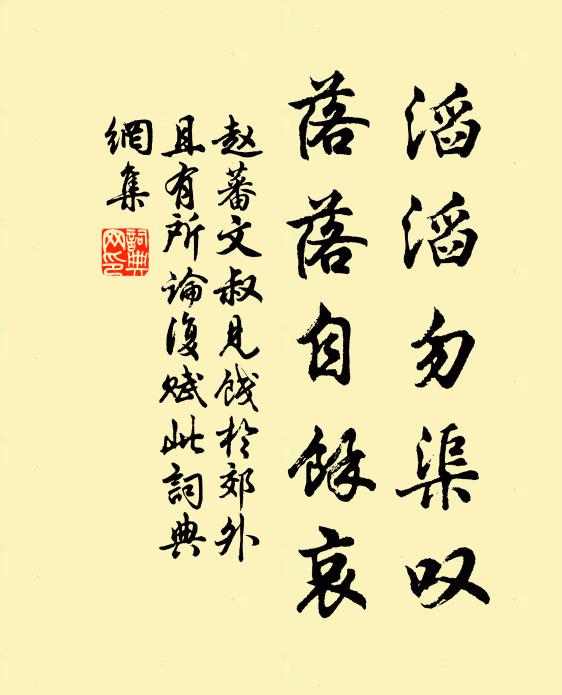 滔滔勿渠叹
落落自馀哀
赵蕃文叔见饯於郊外
且有所論復赋此詞典
網集
詞典網印